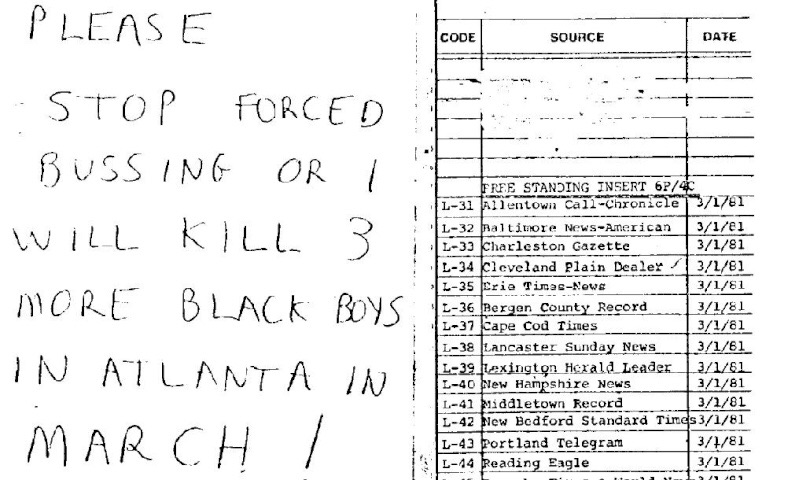 PLEASE
STOP FORCED
BUSSING OR I
WILL KILL 3
MORE BLACK BOYS
IN ATLANTA IN
MARCH !
CODE SOURCE DATE
FREE STANDING INSERT 6P/4C
L-31 Allentown Call-Chronicle 3/1/81
L-32 Baltimore News-American 3/1/81
L-33 Charleston Gazette 3/1/81
L-34 Cleveland Plain Dealer ✓ 3/1/81
L-35 Erie Times-News 3/1/81
L-36 Bergen County Record 3/1/81
L-37 Cape Cod Times 3/1/81
L-38 Lancaster Sunday News 3/1/81
L-39 Lexington Herald Leader 3/1/81
L-40 New Hampshire News 3/1/81
L-41 Middletown Record 3/1/81
L-42 New Bedford Standard Times 3/1/81
L-43 Portland Telegram 3/1/81
L-44 Reading Eagle 3/1/81